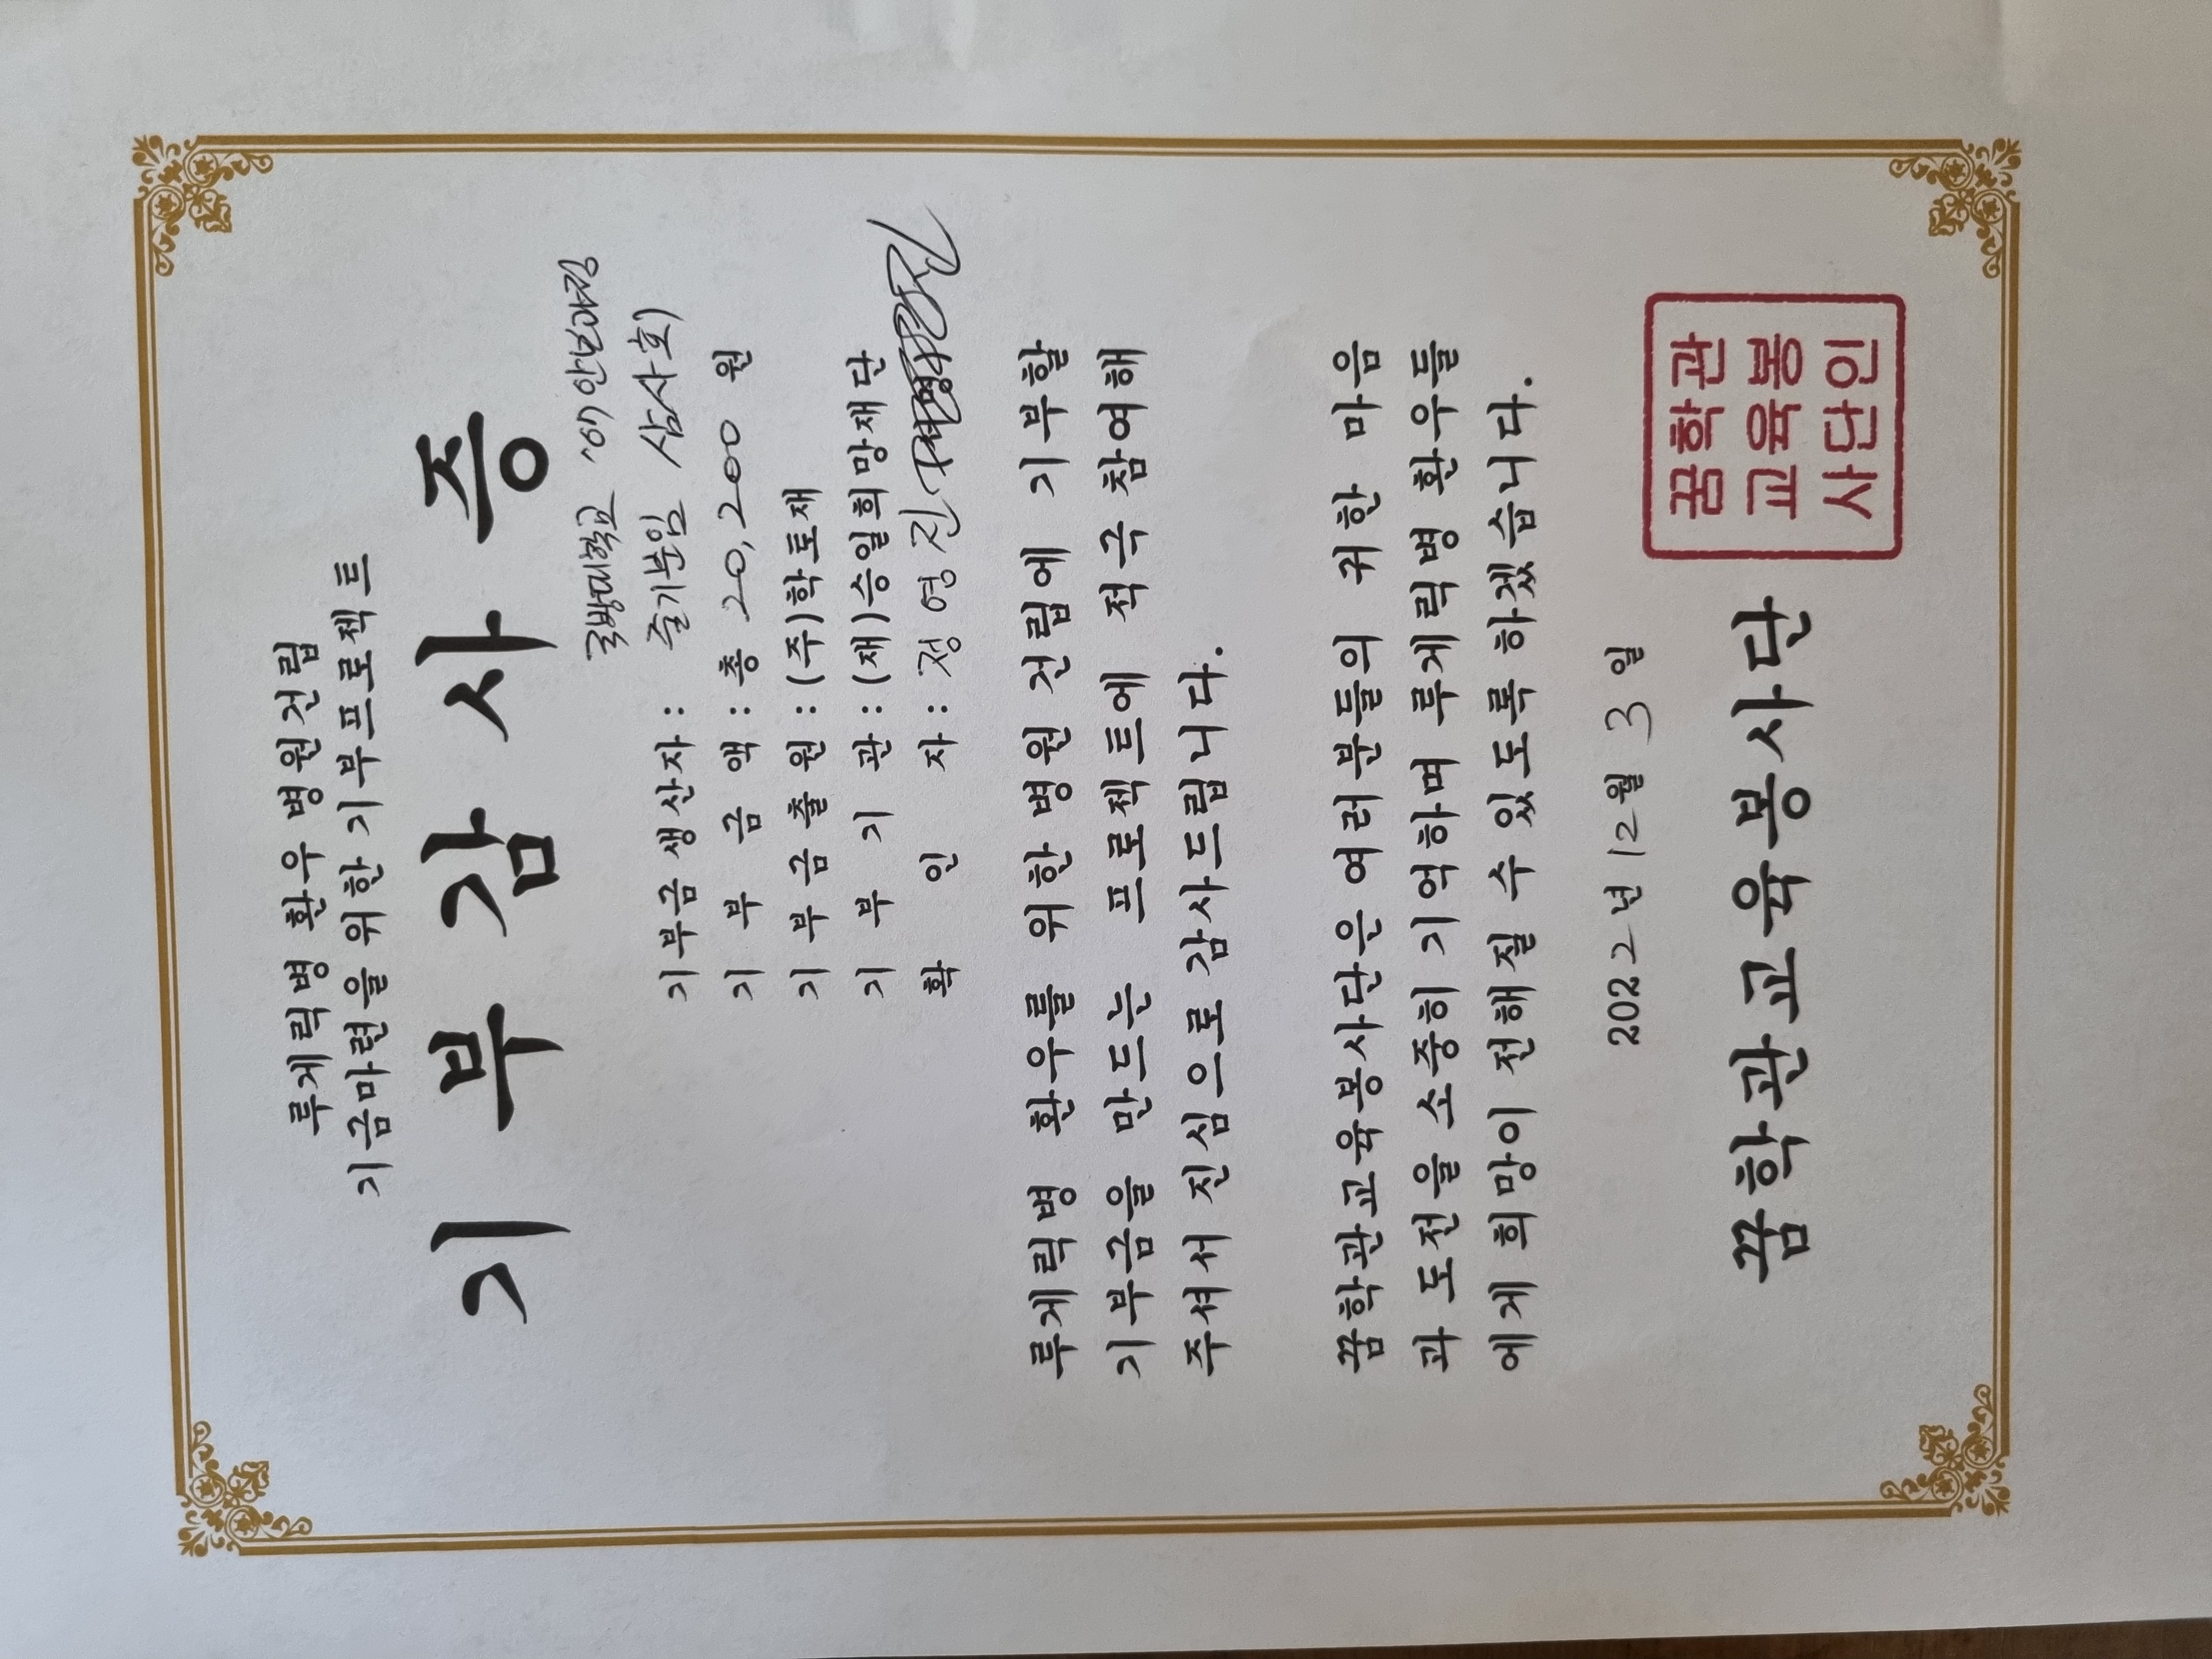 루게릭병 환우 병원건립
기금마련을 위한 기부프로젝트
기 부 감 사 증
국방대학교 '67 안보과정
기부금생산자 : 줄기분임 삼사호)
기 부 금 액 : 총 20,200 원
기 부 금 출 원 : (주)학토재
기 부 기 관 : (재)승일희망재단
확 인 자 : 정영진
루게릭병 환우를 위한 병원 건립에 기부할
기부금을 만드는 프로젝트에 적극 참여해
주셔서 진심으로 감사드립니다.
꿈학관교육봉사단은 여러분들의 귀한 마음
과 도전을 소중히 기억하며 루게릭병 환우들
에게 희망이 전해질 수 있도록 하겠습니다.
2022년 12월 3일
꿈학관교육봉사단
꿈학관
교육봉
사단인